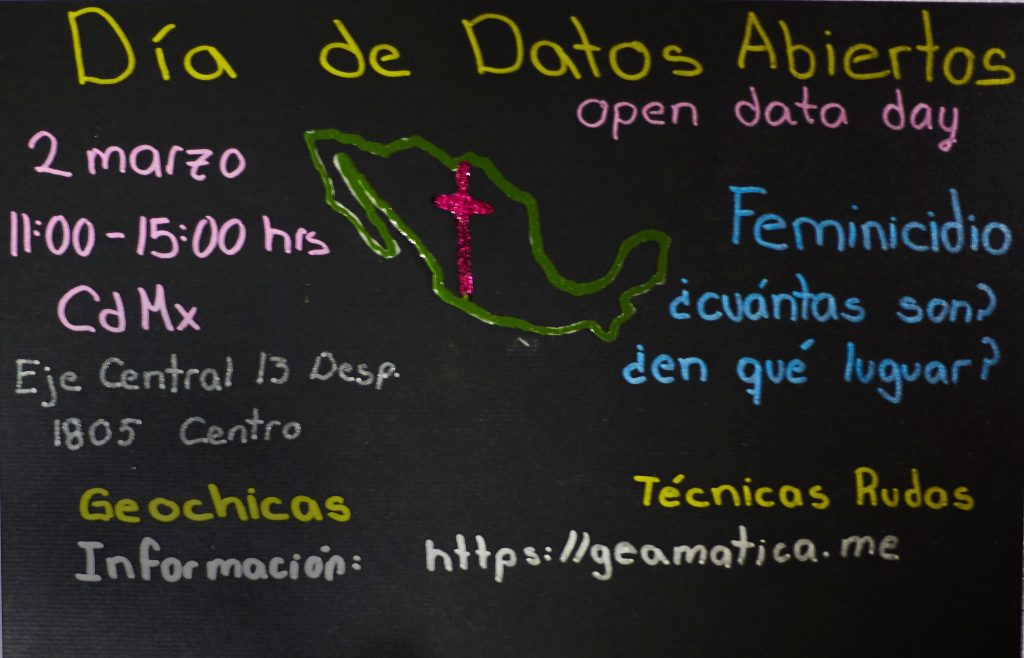 Día de Datos Abiertos
open data day
2 marzo
11:00 - 15:00 hrs
CdMx
Eje Central 13 Desp.
1805 Centro
Feminicidio
¿cuántas son?
¿en qué luguar?
Geochicas
Técnicas Rudas
Información: https://geamatica.me